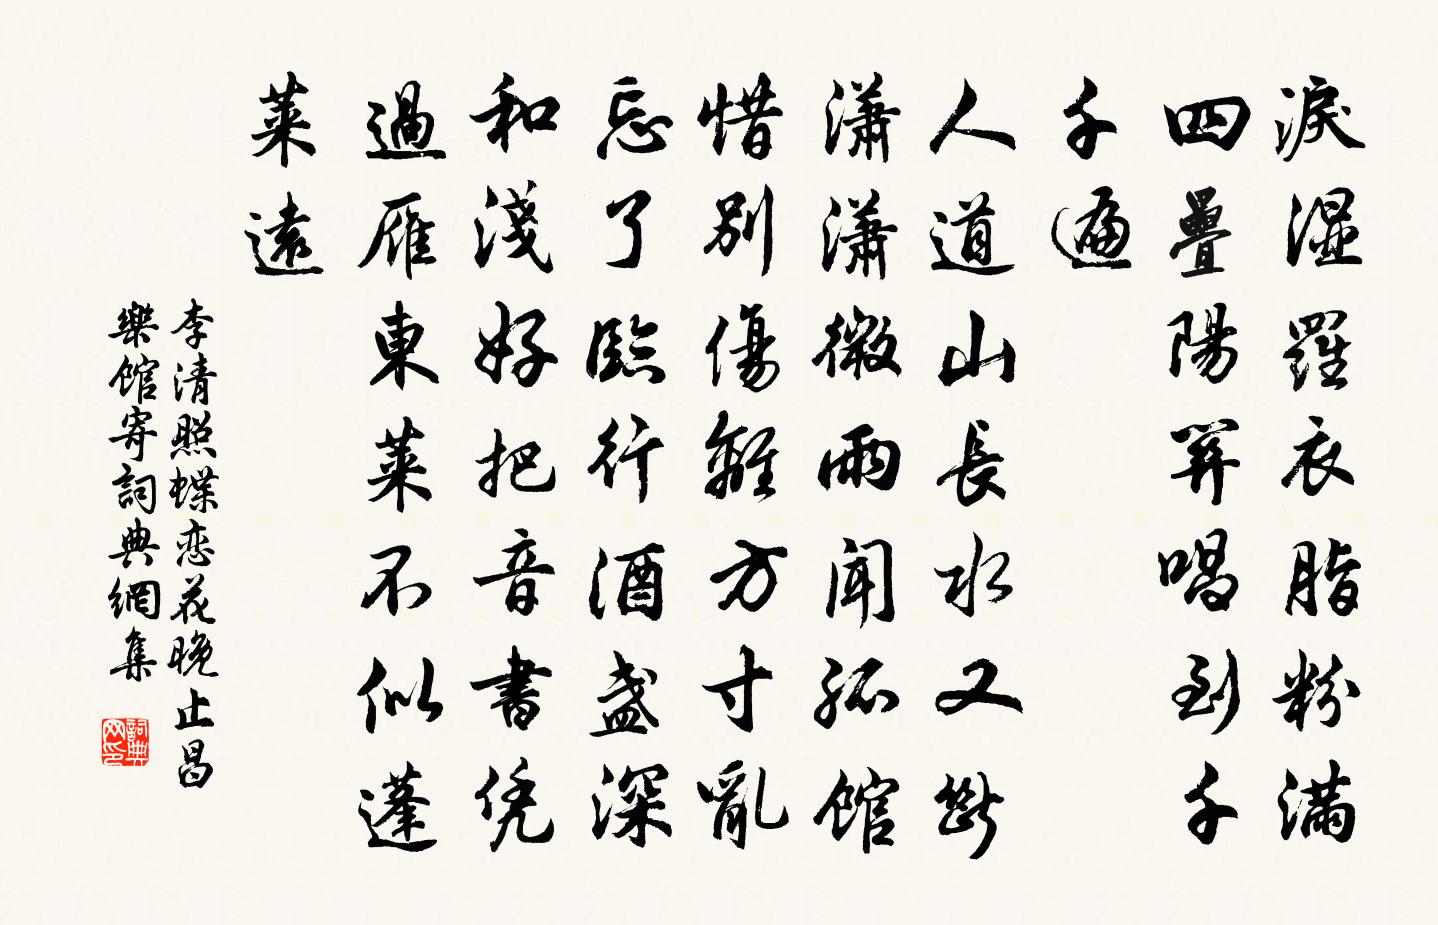 淚濕羅衣脂粉滿
四疊陽關唱到千
千遍
人道山長水又斷
瀟瀟微雨聞孤館
惜別傷離方寸亂
忘了臨行酒盞深
和淺好把音書凭
過雁東萊不似蓬
萊遠
李清照蝶恋花晚止昌
樂馆寄詞典網集
詞典
网印